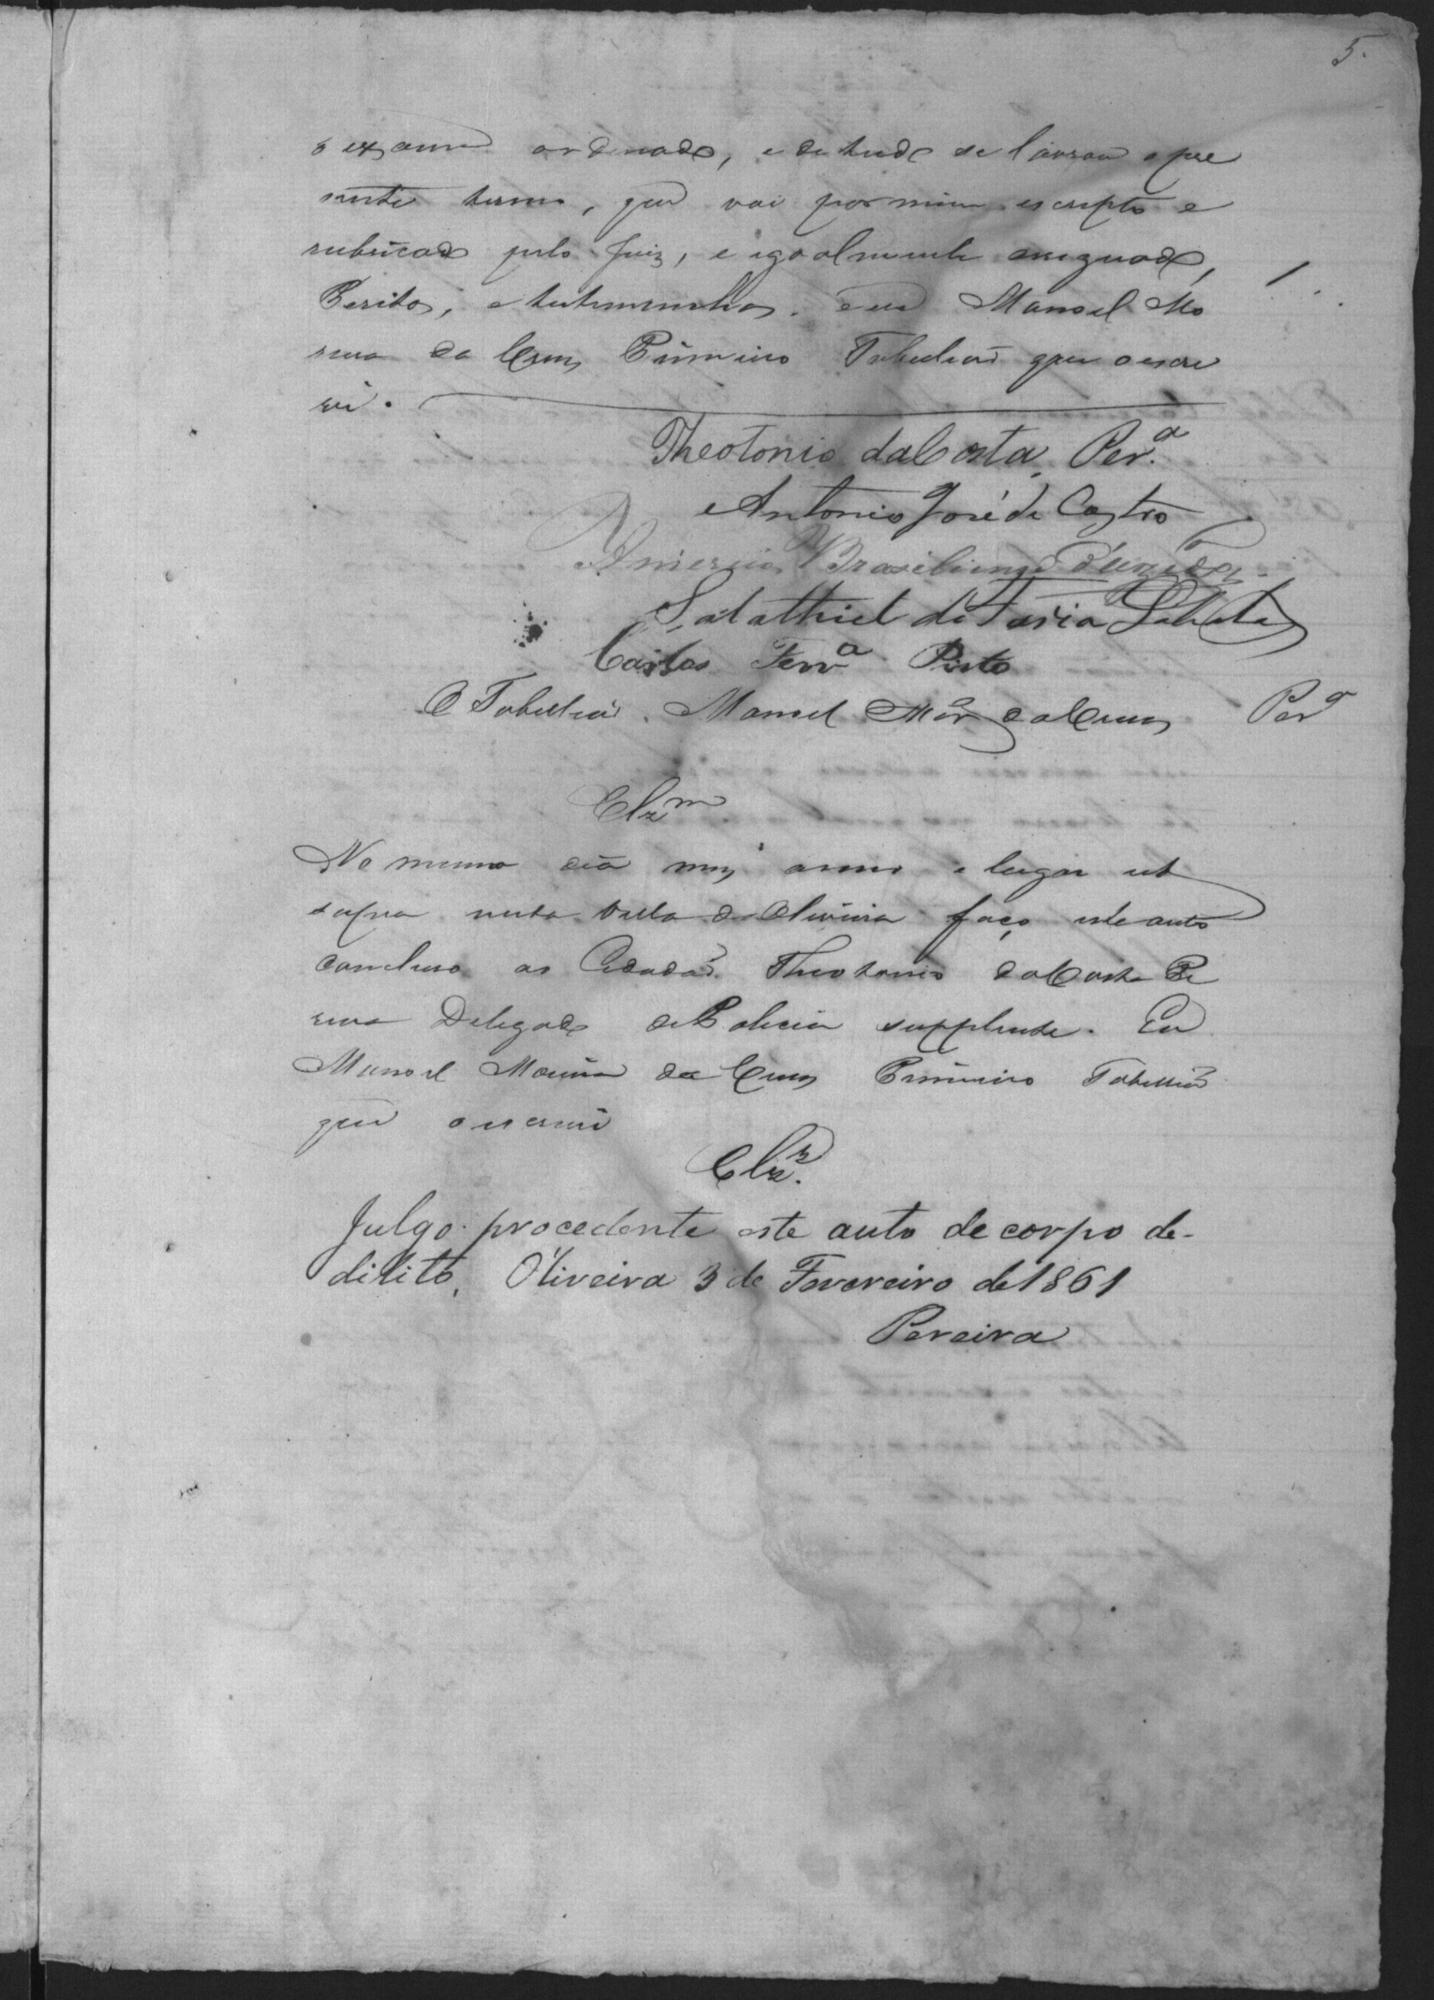 5.
o exame ordenado, e de tudo se lavrou o pre
sente termo, que vai por mim escripto e
rubricado pelo Juiz, e igoalmente assignado,
Peritos, e testemunhas. eu Manoel Mo
reira da Cruz Primeiro Tabelião que o escre
vi.
Theotonio da Costa Per.ª
Antonio José de Castro
Americo Brasiliense
Salathiel de Faria Lobato
Carlos Ferr.ª Pinto
O Tabelliaõ Manoel Mor.ª da Cruz Per.ª
Clz.m
No mesmo dia mes anno e lugar ut
supra nesta Villa de Oliveira faço este auto
concluso ao Cidadaõ Theotonio da Costa Pe
reira Delegado de Policia supplente. Eu
Manoel Moreira da Cruz Primeiro Tabelliaõ
que o escrevi
Clz.
Julgo procedente este auto de corpo de-
dilito, Oliveira 3 de Fevereiro de 1861
Pereira